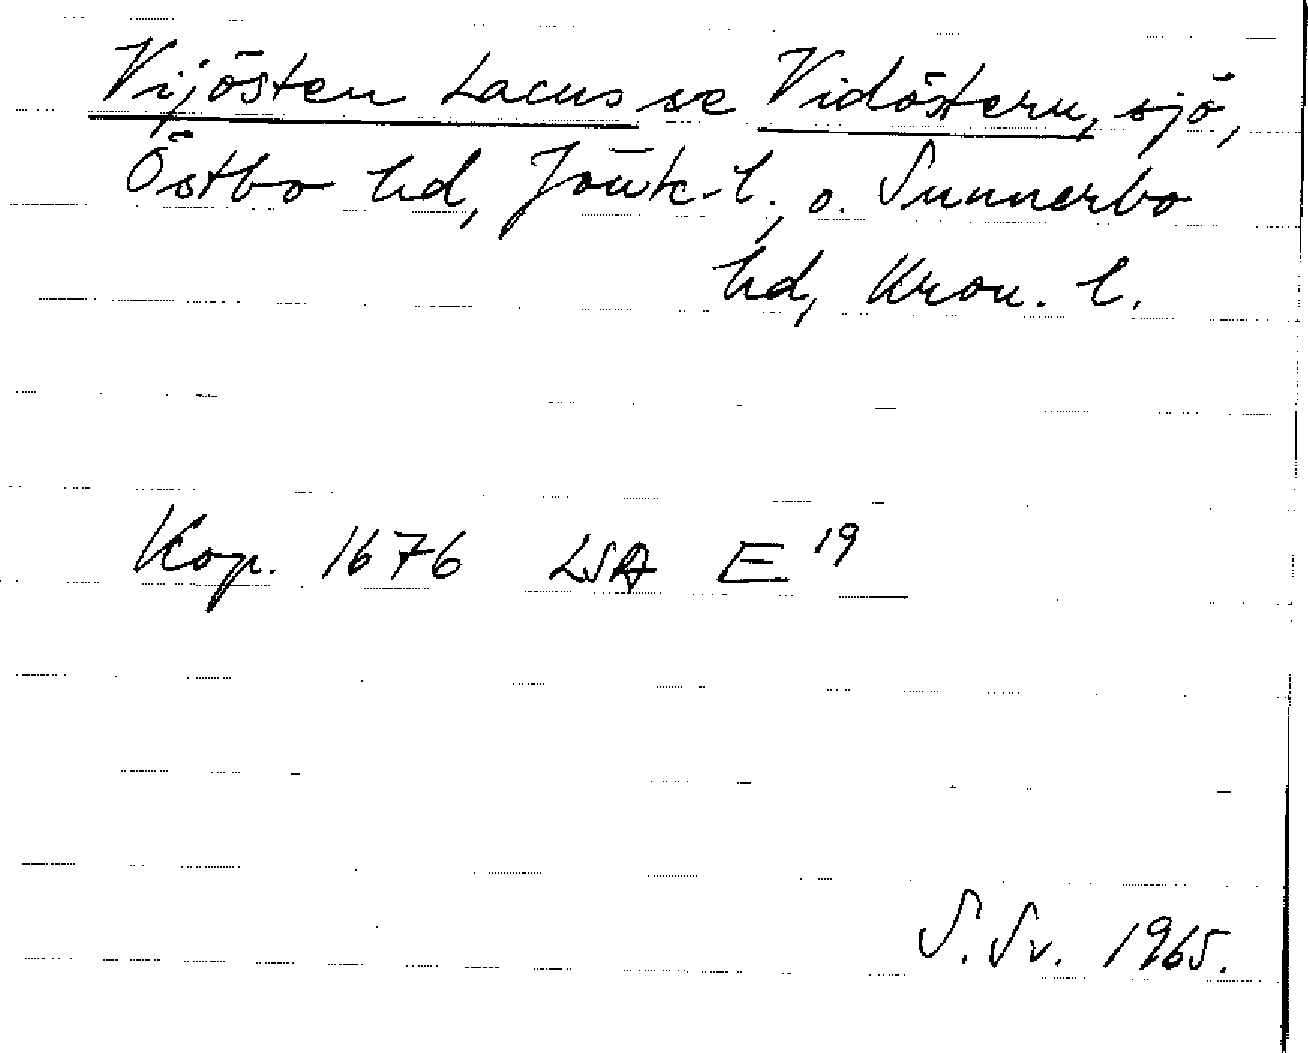 Vijösten Lacus se Vidöstern, sjö,
Östbo hd, Jönk. l., o. Sunnerbo
hd, Kron. l.
Kop. 1676 LSA E 19
S. Sv. 1965.